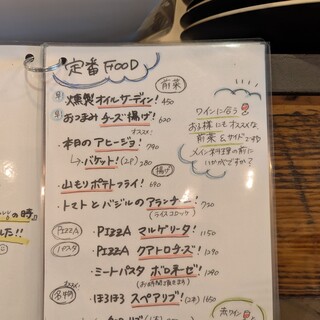 定番 FOOD
前菜
燻製オイルサーディン! 450
おつまみチーズ揚げ! 620
オススメ!
本日のアヒージョ! 790
↳バゲット! (2P) 280
揚げ
山もりポテトフライ! 690
・トマトとバジルのアランチーニ! 720
(ライスコロッケ)
PIZZA
・PIZZA マルゲリータ! 1150
パスタ
・PIZZA クアトロチーズ! 1290
・ミートパスタ ボロネーゼ! 1290
(お時間頂きます)
・ほろほろ スペアリブ! (2本) 1650
ワインに合う
お子様にもオススメな、
前菜&サイドです♪
メイン料理の前に
いかがですか?
の時♪
した!!
赤ワイン